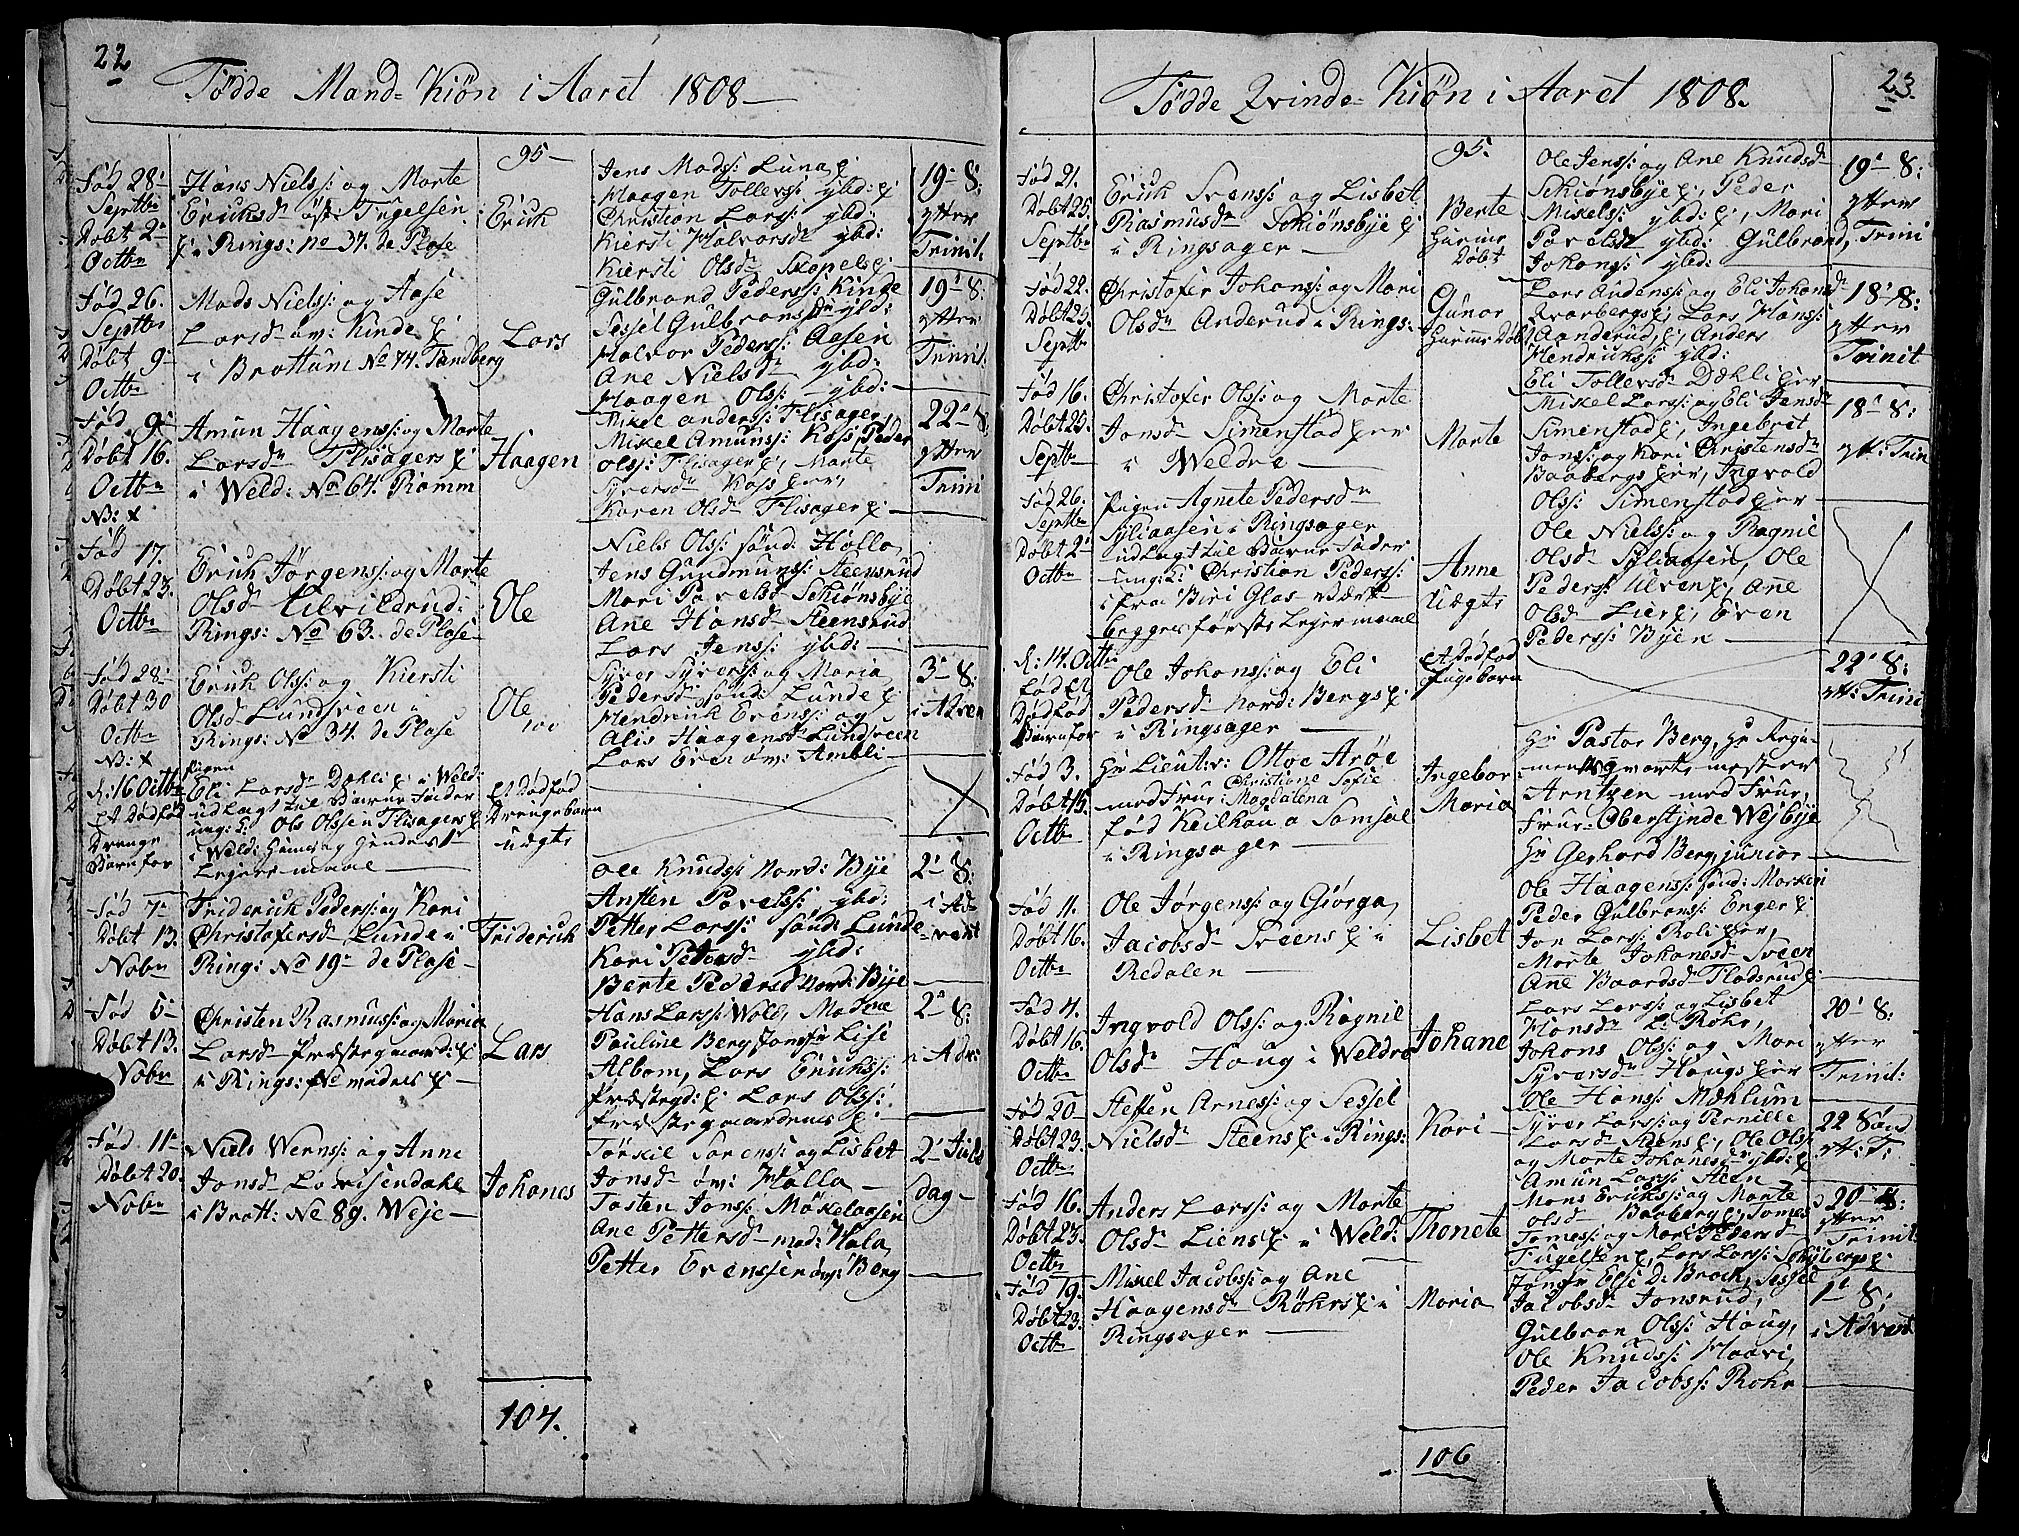 22
Tødde Mand-Kiön i Aaret 1808
95
Fød 28
Septbr
Døbt 2
Octbr
Hans Nielss: og Marte
Ericksd øst: Tugelsen
i Rings: No 37. de Plose
Erick
Jens Madss: Luna
Haagen Tollerss: ybd:
Christian Larss: ybd:
Kiersti Halvorsdr ybd:
Kiersti Olsdr Skapels
19 S:
ytter
Trinit:
Fød 26.
Septbr
Døbt 9
Octbr
Mads Nielss: og Aase
Larsdr øv: Kinde
i Brottum No 74. Tandberg
Lars
Gulbrand Pederss: Kinde
Sessel Gulbransdr ybd:
Halvor Pederss: Aasen
Ane Nielsdr ybd:
Haagen Olss: ybd:
19 S:
ytter
Trinit:
Fød 9
Døbt 16.
Octbr
NB: x
Amun Haagenss: og Marte
Larsdr Flisagers
i Weld: No 64. Ramm
Haagen
Mikel anderss: Flisager,
Mikel Amunss: Koss, Peder
Olss: Flisager, Marte
Syversdr Koss
Karen Olsdr Flisager
22 S:
ytter
Trini
Fød 17.
Døbt 23.
Octbr
Erick Jörgenss: og Marte
Olsdr Lilvildrud
Rings: No 63. de Plose
Ole
Niels Olss: sönd: Holla,
Jens Gundmunss: Steensrud
Mari Pavelsd Schiönsbye
Ane Hansd Steensrud
Lars Jenss: ybd:
Fød 28
Døbt 30
Octbr
NB: x
Erick Olss: og Kiersti
Olsd Lundsveen i
Rings: No 34. de Plose
Ole
Syver Syverss: og Maria
Pedersd sönd: Lunde
Hendrick Evenss: og
Alis Haagensd Lundsveen
Lars Even øv: Ambli
3 S:
i Adven
d: 16 Octbr
et Dødfød
Drenge
Barn før
Pigen
Eli Larsd Dæhli i Weld:
udlagt til Barne Fader
ung: K: Ols Olssen Flisagers
i Weld:
Lejermaal
et Dødfød
Drengebarn
uægte
Fød 7
Døbt 13.
Nobr
Friderick Pederss: og Kari
Christofersd Lunde i
Ring: No 19 de Plose
Friderick
Ole Knudss: Nord: Bye
Ansten Pavelss: ybd:
Petter Larss: sönd: Lunde
Kari Petersd ybd:
Berte Pedersd Nord: Bye
2 S:
i Ad-
vent
Fød 5
Døbt 13.
Nobr
Christen Rasmuss: og Maria
Larsd Præstegaard:
i Rings:
Lars
Hans Larss: Wold, Madme
Pauline Berg, Jomfr Lise
Albom, Lars Erickss:
Præstegd: Lars Olss:
Præstegaardens
2 S:
i Adv:
Fød 11
Døbt 20.
Nobr
Niels Wernss: og Anne
Jonsd Lovisendahl
i Brott: No 89. Weje
Johanes
Torskil Sorenss: og Lisbet
Jonsd øv: Halla
Tosten Jonss: Mökelaasen
Ane Pettersd Hala
Petter Evenssen øv: Berg
2 Jule
Dag
104.
23.
Tødde Qvinde-Kiön i Aaret 1808.
95.
Fød 21.
Døbt 25.
Septbr
Erick Svenss: og Lisbet
Rasmusdr Schiönsbye
i Ringsager
Berte
hieme
Døbt
Ole Jenss: og Ane Knudsd
Schiönsbye, Peder
Mikelss: ybd:, Mari
Pavelsdr ybd: Gulbrand,
Johanss: ybd:
19 S:
ytter
Trini
Fød 22.
Døbt 25.
Septbr
Christofer Johanss: og Mari
Olsdr Anderud i Rings:
Gunor
hieme Døbt
Lars Anderss: og Eli Johansd
Kvarbergs, Lars Hanss:
Aanderud, Anders
Hendrickss: ybd:
Eli Tollersd Dæhli
18 S:
ytter
Trinit
Fød 16.
Døbt 25.
Septbr
Christofer Olss: og Marte
Jonsd Simenstad
i Weldre
Marte
Mikel Larss: og Eli Jensd
Simenstad, Ingebret
Jonss: og Kari Christensd
Baabergs, Ingvold
Olss: Simenstad
18 S:
yt: Trin
Fød 26.
Septbr
Døbt 2
Octbr
Pigen Agnete Pedersdr
Syliaasen i Ringsager
udlagt til Barne Fader
ung: K: Christian Pederss:
ifra Biri Glas Værk
begges første Lejermaal
Anne
Uægte
Ole Nielss: og Ragnil
Olsd Syliaasen, Ole
Pederss: Ulven, Ane
Olsd Lier, Even
Pederss: Byen
d: 14. Octbr
født et
Dødfød
Barn før
Ole Johanss: og Eli
Pedersd Nord: Bergs
i Ringsager
et Dødfød
Pigebarn
22 S:
yt: Trini
Fød 3.
Døbt 15.
Octbr
Hr Lieut: v: Ottoe Aröe
med Frue: Christiane Sofie
Magdalena
fød Keilhau a Samsal
i Ringsager
Ingebor
Maria
Hr Pastor Berg, Hr Regi-
ments qvarteermester
Arntzen med Frue,
Frue Oberstinde Wejbye
Hr Gerhard Berg, junior
Fød 11.
Døbt 16.
Octbr
Ole Jørgenss: og Giörga
Jacobsd Sveens i
Redalen
Lisbet
Ole Haagenss: sönd: Morkin
Peder Gulbranss: Enger
Jon Larss: Roli
Marte Johanesd Sveen
Ane Baardsd Fladsrud
Fød 4.
Døbt 16.
Octbr
Ingvold Olss: og Ragnil
Olsd Haug i Weldre
Johane
Lars Larss: og Lisbet
Hansd L: Röhr,
Johans Olss: og Mari
Syversd Haugs
Ole Hanss: Mæhlum
20 S:
ytter
Trinit:
Fød 20
Døbt 23.
Octbr
Steffen Arness: og Sessel
Nielsd Steens i Rings:
Kari
Syver Larss: og Pernille
Larsd Steens, Ole Olss
og Marte Johanesd ybd:
Amun Larss: Steen
22 Sönd
yt: T:
Fød 16.
Døbt 23.
Octbr
Anders Larss: og Marte
Olsd Liens i Weld:
Thonete
Mons Erickss: og Marte
Olsd Baaberg, Tomes
Tomess: og Mari Pedersd
Tugelsen, Lars Larss:
20 S:
ytter
Trinit:
Fød 19.
Døbt 23.
Octbr
Mikel Jacobss: og Ane
Haagensd Röhrs i
Ringsager
Maria
Jomfr Else D: Brock, Sessel
Jacobsd Jonsrud,
Gulbran Olss: Haug,
Ole Knudss: Haavi,
Peder Jacobss: Rohr
1 S:
i Advent
106